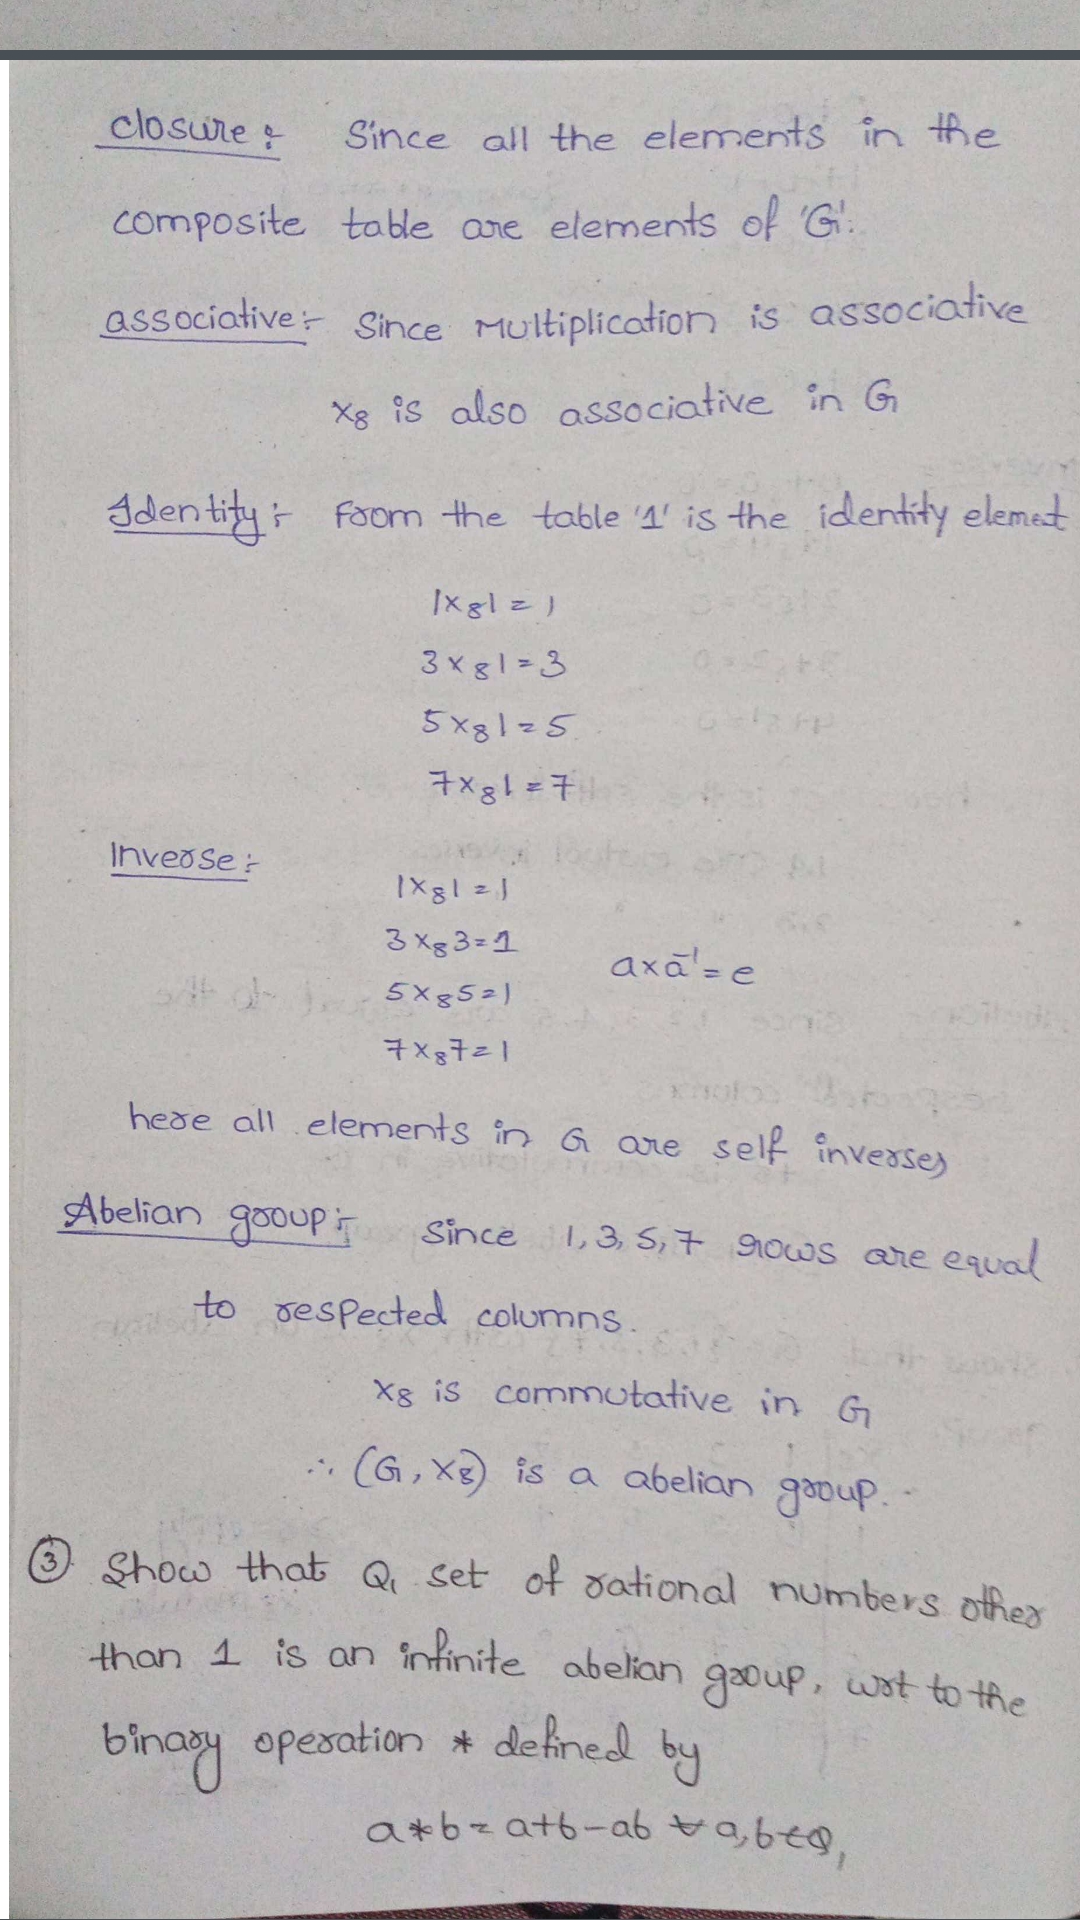 closure :- Since all the elements in the
composite table are elements of 'G'.
associative :- Since Multiplication is associative
x₈ is also associative in G
Identity :- From the table '1' is the identity elemet
1x₈1 = 1
3x₈1 = 3
5x₈1 = 5
7x₈1 = 7
Inverse :-
1x₈1 = 1
3x₈3 = 1
a x a⁻¹ = e
5x₈5 = 1
7x₈7 = 1
here all elements in G are self inverses
Abelian group :- Since 1, 3, 5, 7 rows are equal
to respected columns.
x₈ is commutative in G
∴ (G, x₈) is a abelian group.
③ Show that Q₁ set of rational numbers other
than 1 is an infinite abelian group, wrt to the
binary operation * defined by
a*b = a+b-ab ∀ a,b∈Q₁